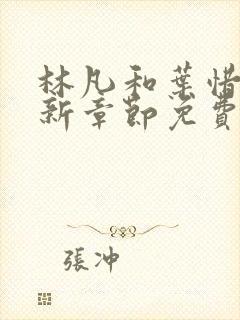 林凡和葉惜
新章節免費
張冲